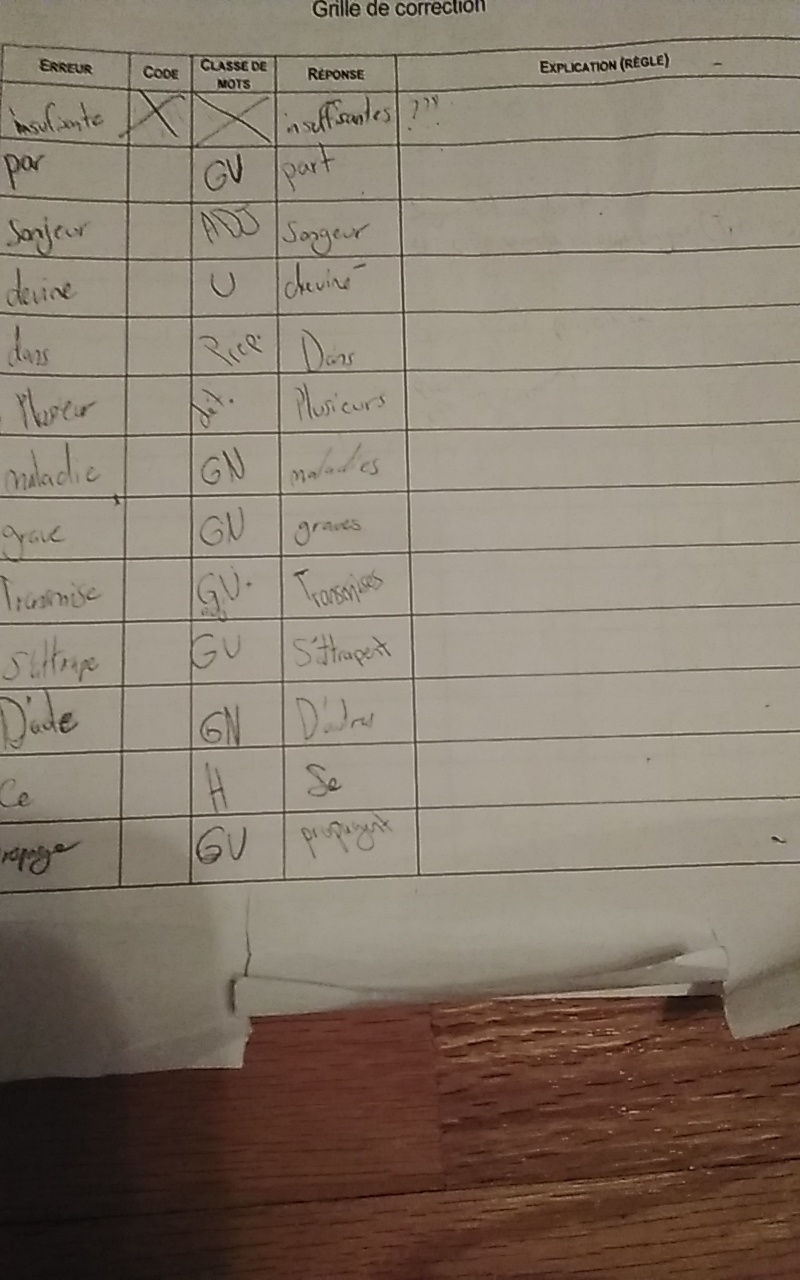 Grille de correction
ERREUR CODE CLASSE DE MOTS RÉPONSE EXPLICATION (RÈGLE)
insufisante X X insuffisantes ???
par GV part
Sonjeur ADJ Songeur
devine V deviné
dans Prép. Dans
Plusieur dét. Plusieurs
maladie GN maladies
grave GN graves
Transmise GV. adj Transmises
S'attrape GV S'attrapent
GN
Ce H Se
GV propagent